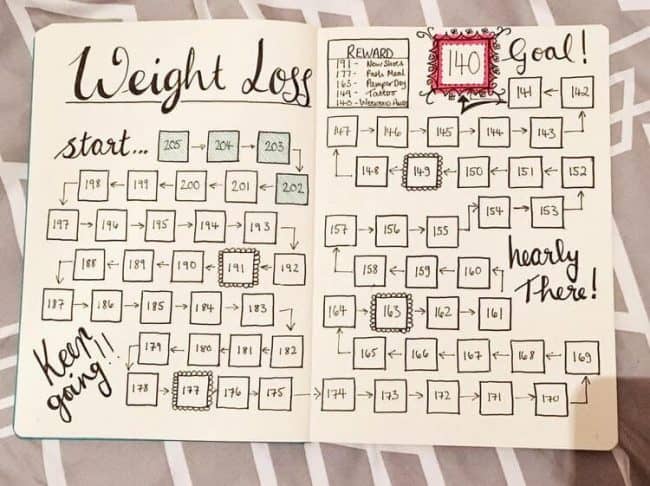 Weight Loss
start...
205 204 203
198 199 200 201 202
197 196 195 194 193
188 189 190 191 192
187 186 185 184 183
179 180 181 182
Keep
going!!!
178 177 176 175
REWARD
191 - New Shoes
177 - Meal
163 - Pamper Day
149 - Tattoo
140 - Weekend Away
140
Goal!
141 142
147 146 145 144 143
148 149 150 151 152
154 153
157 156 155
158 159 160
nearly
There!
164 163 162 161
165 166 167 168 169
174 173 172 171 170